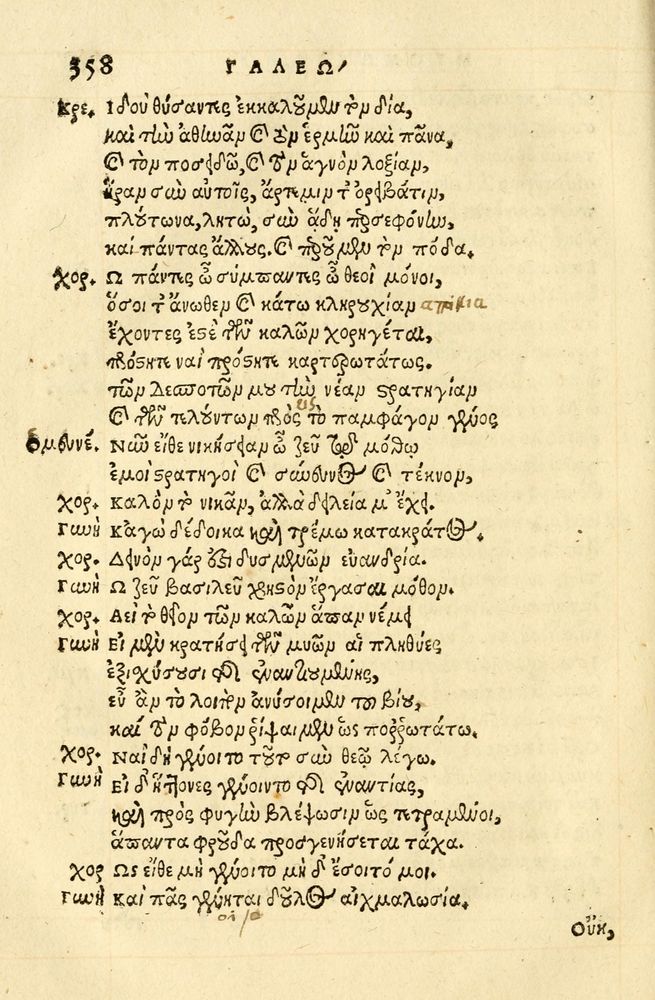 358 ΓΑΛΕΩ
Κρε. Ιδού θύσαντες ἐκκαλοῦμεν τὸν δία,
καὶ τὴν ἀθηνᾶν καὶ τὸν ἑρμῆν καὶ πᾶνα,
καὶ τὸν ποσειδῶ, καὶ τὸν ἁγνὸν λοξίαν,
ἥραν σὺν αὐτοῖς, ἄρτεμιν τ' ὀρειβάτιν,
πλούτωνα, λητὼ, σὺν ἅδῃ προσεφόνην,
καὶ πάντας ἄλλους. καὶ προῦμεν τὸν πόδα.
Χορ. Ω πάντες ὦ σύμπαντες ὦ θεοὶ μόνοι,
ὅσοι τ' ἄνωθεν καὶ κάτω κληρουχίαν
ἔχοντες ἐστὲ τῶν καλῶν χορηγέται,
πρόσητε ναὶ πρόσητε καρτερωτάτως.
τῶν Δεσποτῶν μου τὴν νέαν στρατηγίαν
καὶ τῶν τελούντων πρὸς τὸ παμφάγον γένος
Ομευνέ. Ναῦ εἴθε νικήσειαν ὦ ζεῦ τῷ μόθῳ
ἐμοὶ στρατηγοὶ καὶ σύνευνος καὶ τέκνον,
χορ. Καλὸν τὸ νικᾶν, ἀλλὰ δειλεία μ' ἔχει.
Γυνὴ Καγὼ δέδοικα καὶ τρέμω κατακράτος.
χορ. Δεινὸν γάρ ἐστι δυσμενῶν εὐανδρία.
Γυνὴ Ω ζεῦ βασιλεῦ χρηστὸν ἔργασαι μόθον.
χορ. Αεὶ τὸ θεῖον τῶν καλῶν ἅπαν νέμει
Γυνὴ Εἰ μὲν κρατήσει τῶν μυῶν αἱ πληθύες
ἐξισχύσουσι τῆς ἐναντιουμένης,
εὖ ἂν τὸ λοιπὸν ἀνύσοιμεν τοῦ βίου,
καὶ τὸν φόβον ῥίψαιμεν ὡς ποῤῥωτάτω.
χορ. Ναὶ δὴ γένοιτο τοῦτο σὺν θεῷ λέγω.
Γυνὴ Εἰ δ' ἥττονες γένοιντο τῆς ἐναντίας,
καὶ πρὸς φυγὴν βλέψωσιν ὡς τετραμμένοι,
ἅπαντα φροῦδα προσγενήσεται τάχα.
χορ Ως εἴθε μὴ γένοιτο μὴ δ' ἔσοιτό μοι.
Γυνὴ Καὶ πᾶς γένηται δοῦλος αἰχμαλωσία.
Οὔκ,